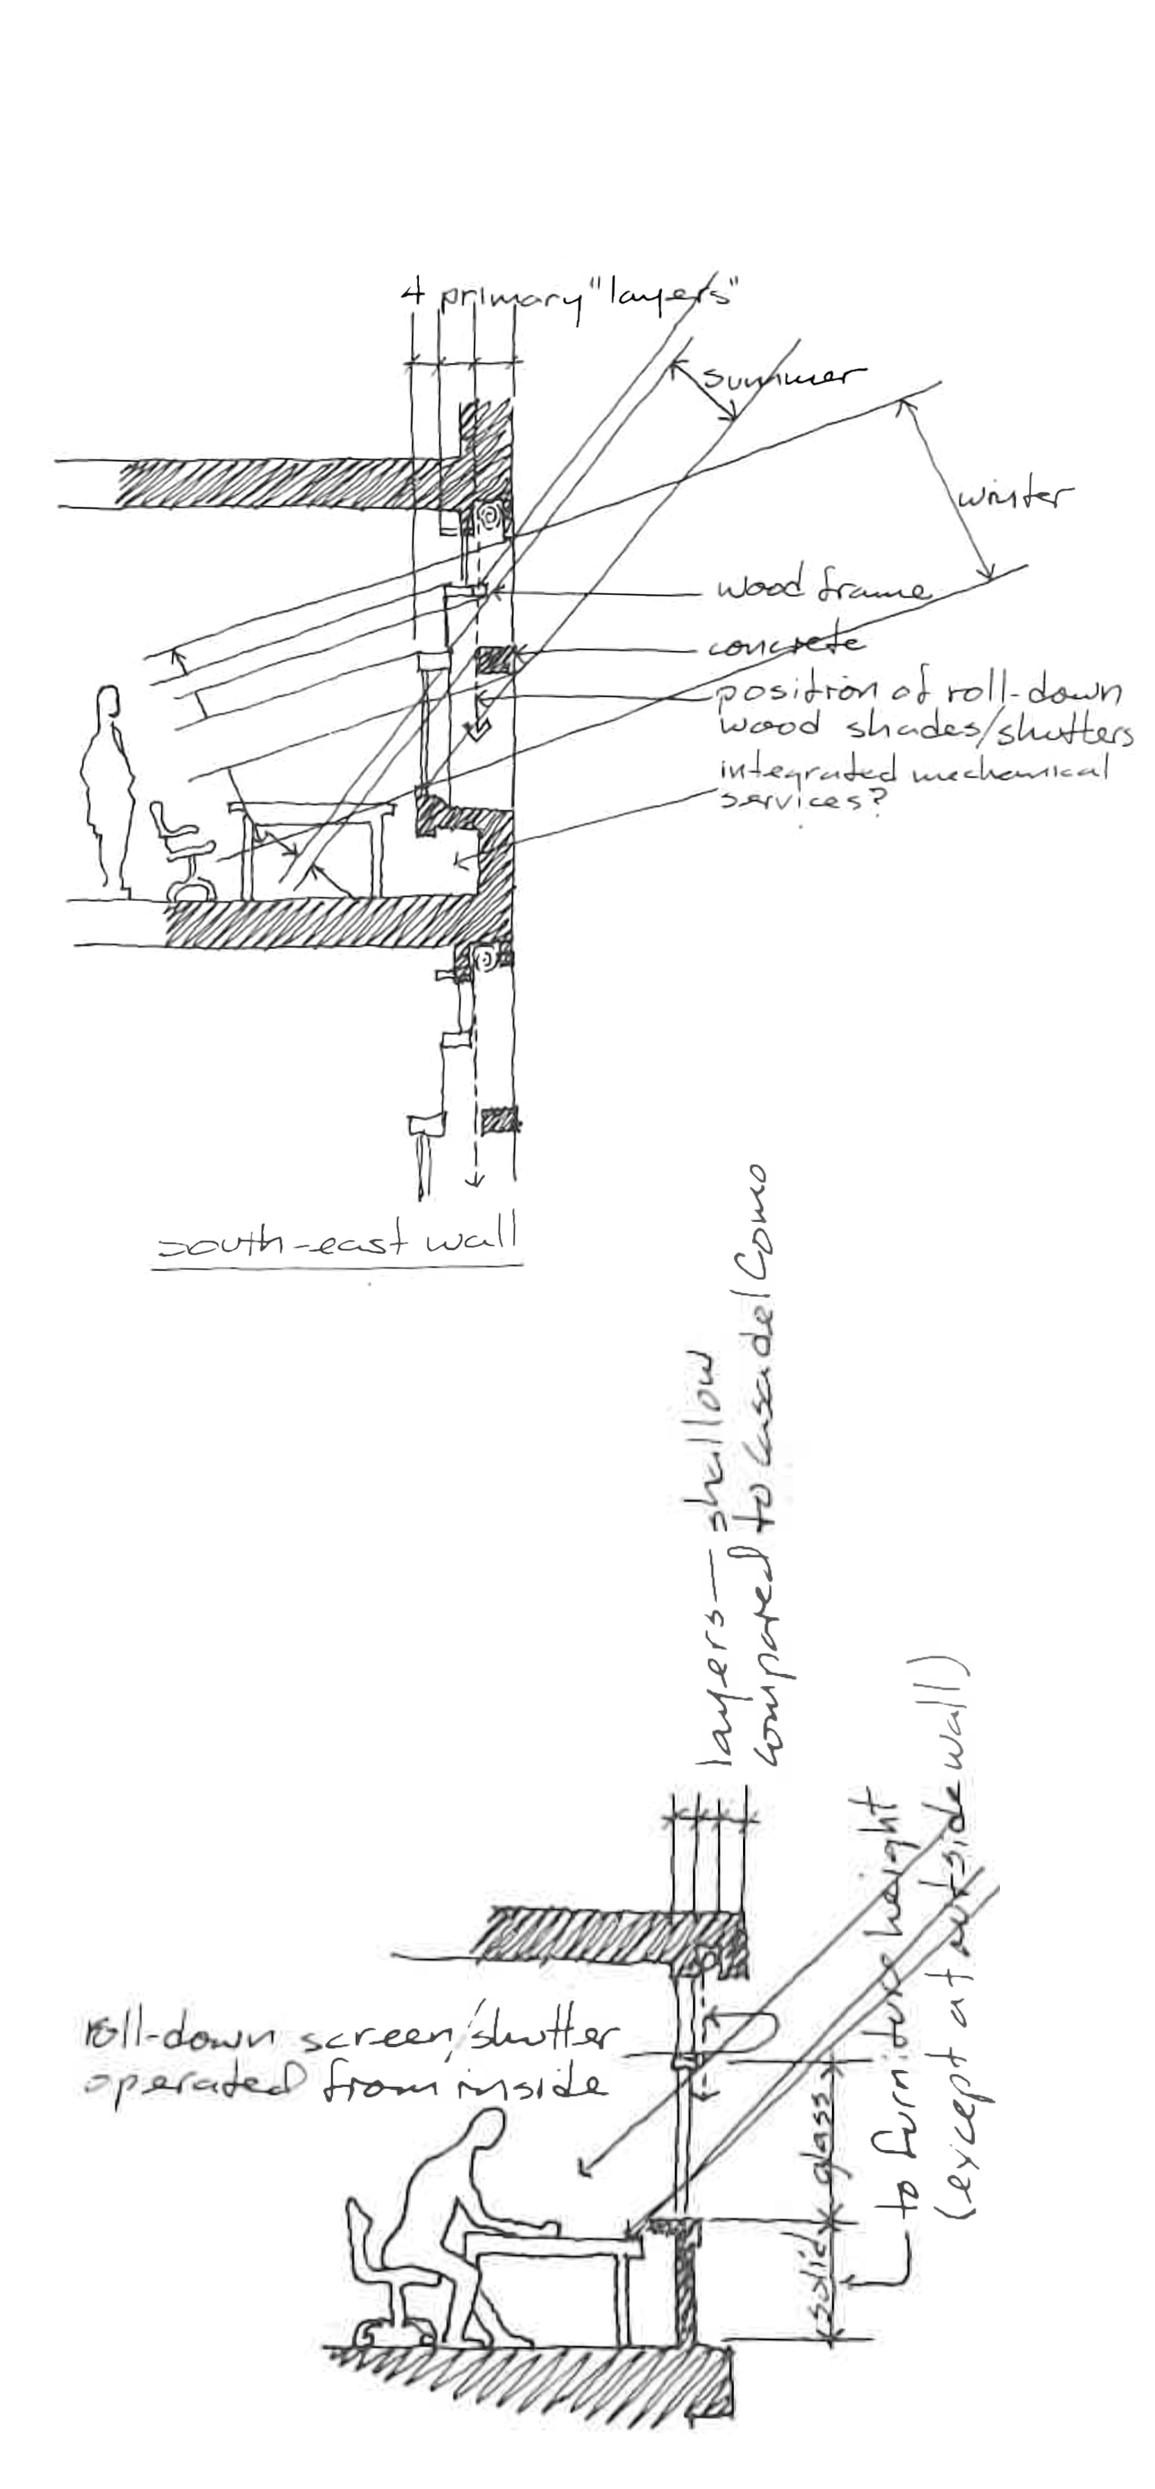 4 primary "layers"
summer
winter
wood frame
concrete
position of roll-down
wood shades/shutters
integrated mechanical
services?
south-east wall
layers—shallow
compared to Casa del Como
roll-down screen/shutter
operated from inside
glass
solid
to furniture height
(except at outside wall)